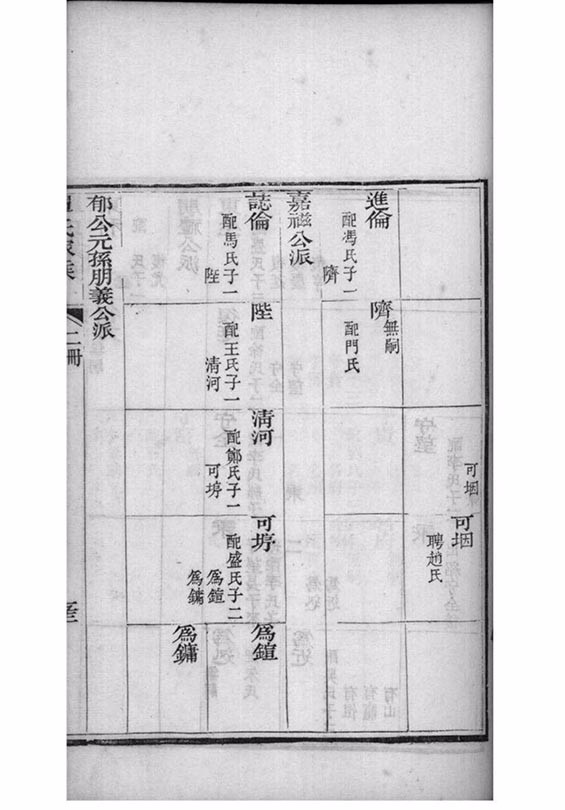 可堌
可堌
聘趙氏
進倫
配馮氏子一
隮
隮
無嗣
配門氏
嘉禌公派
誌倫
配馬氏子一
陛
陛
配王氏子一
清河
清河
配鄭氏子一
可㙘
可㙘
配盛氏子二
爲鍹
爲鏞
爲鍹
爲鏞
郁公元孫朋義公派
二冊